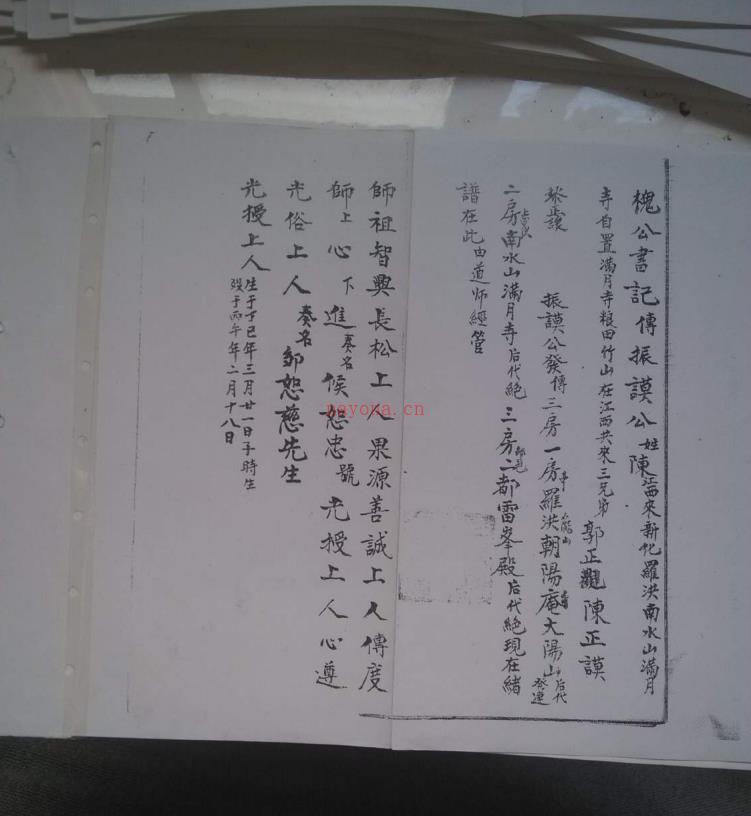 槐公書記傳振謨公姓陳江西來新化羅洪南水山滿月
寺自置滿月寺粮田竹山在江西共來三兄弟郭正觀陳正謨
振謨公發傳三房一房羅洪朝陽庵大陽山后代發達
二房南水山滿月寺后代絕三房二都雷峯殿后代絕現在緒
譜在此由道师經管
師祖智興長松上人果源善誠上人傳度
師上心下進奏名候恕忠號光授上人心遵
光俗上人奏名邹恕慈先生
光授上人生于丁巳年三月廿一日子時生
殁于丙午年二月十八日
nayoua.cn